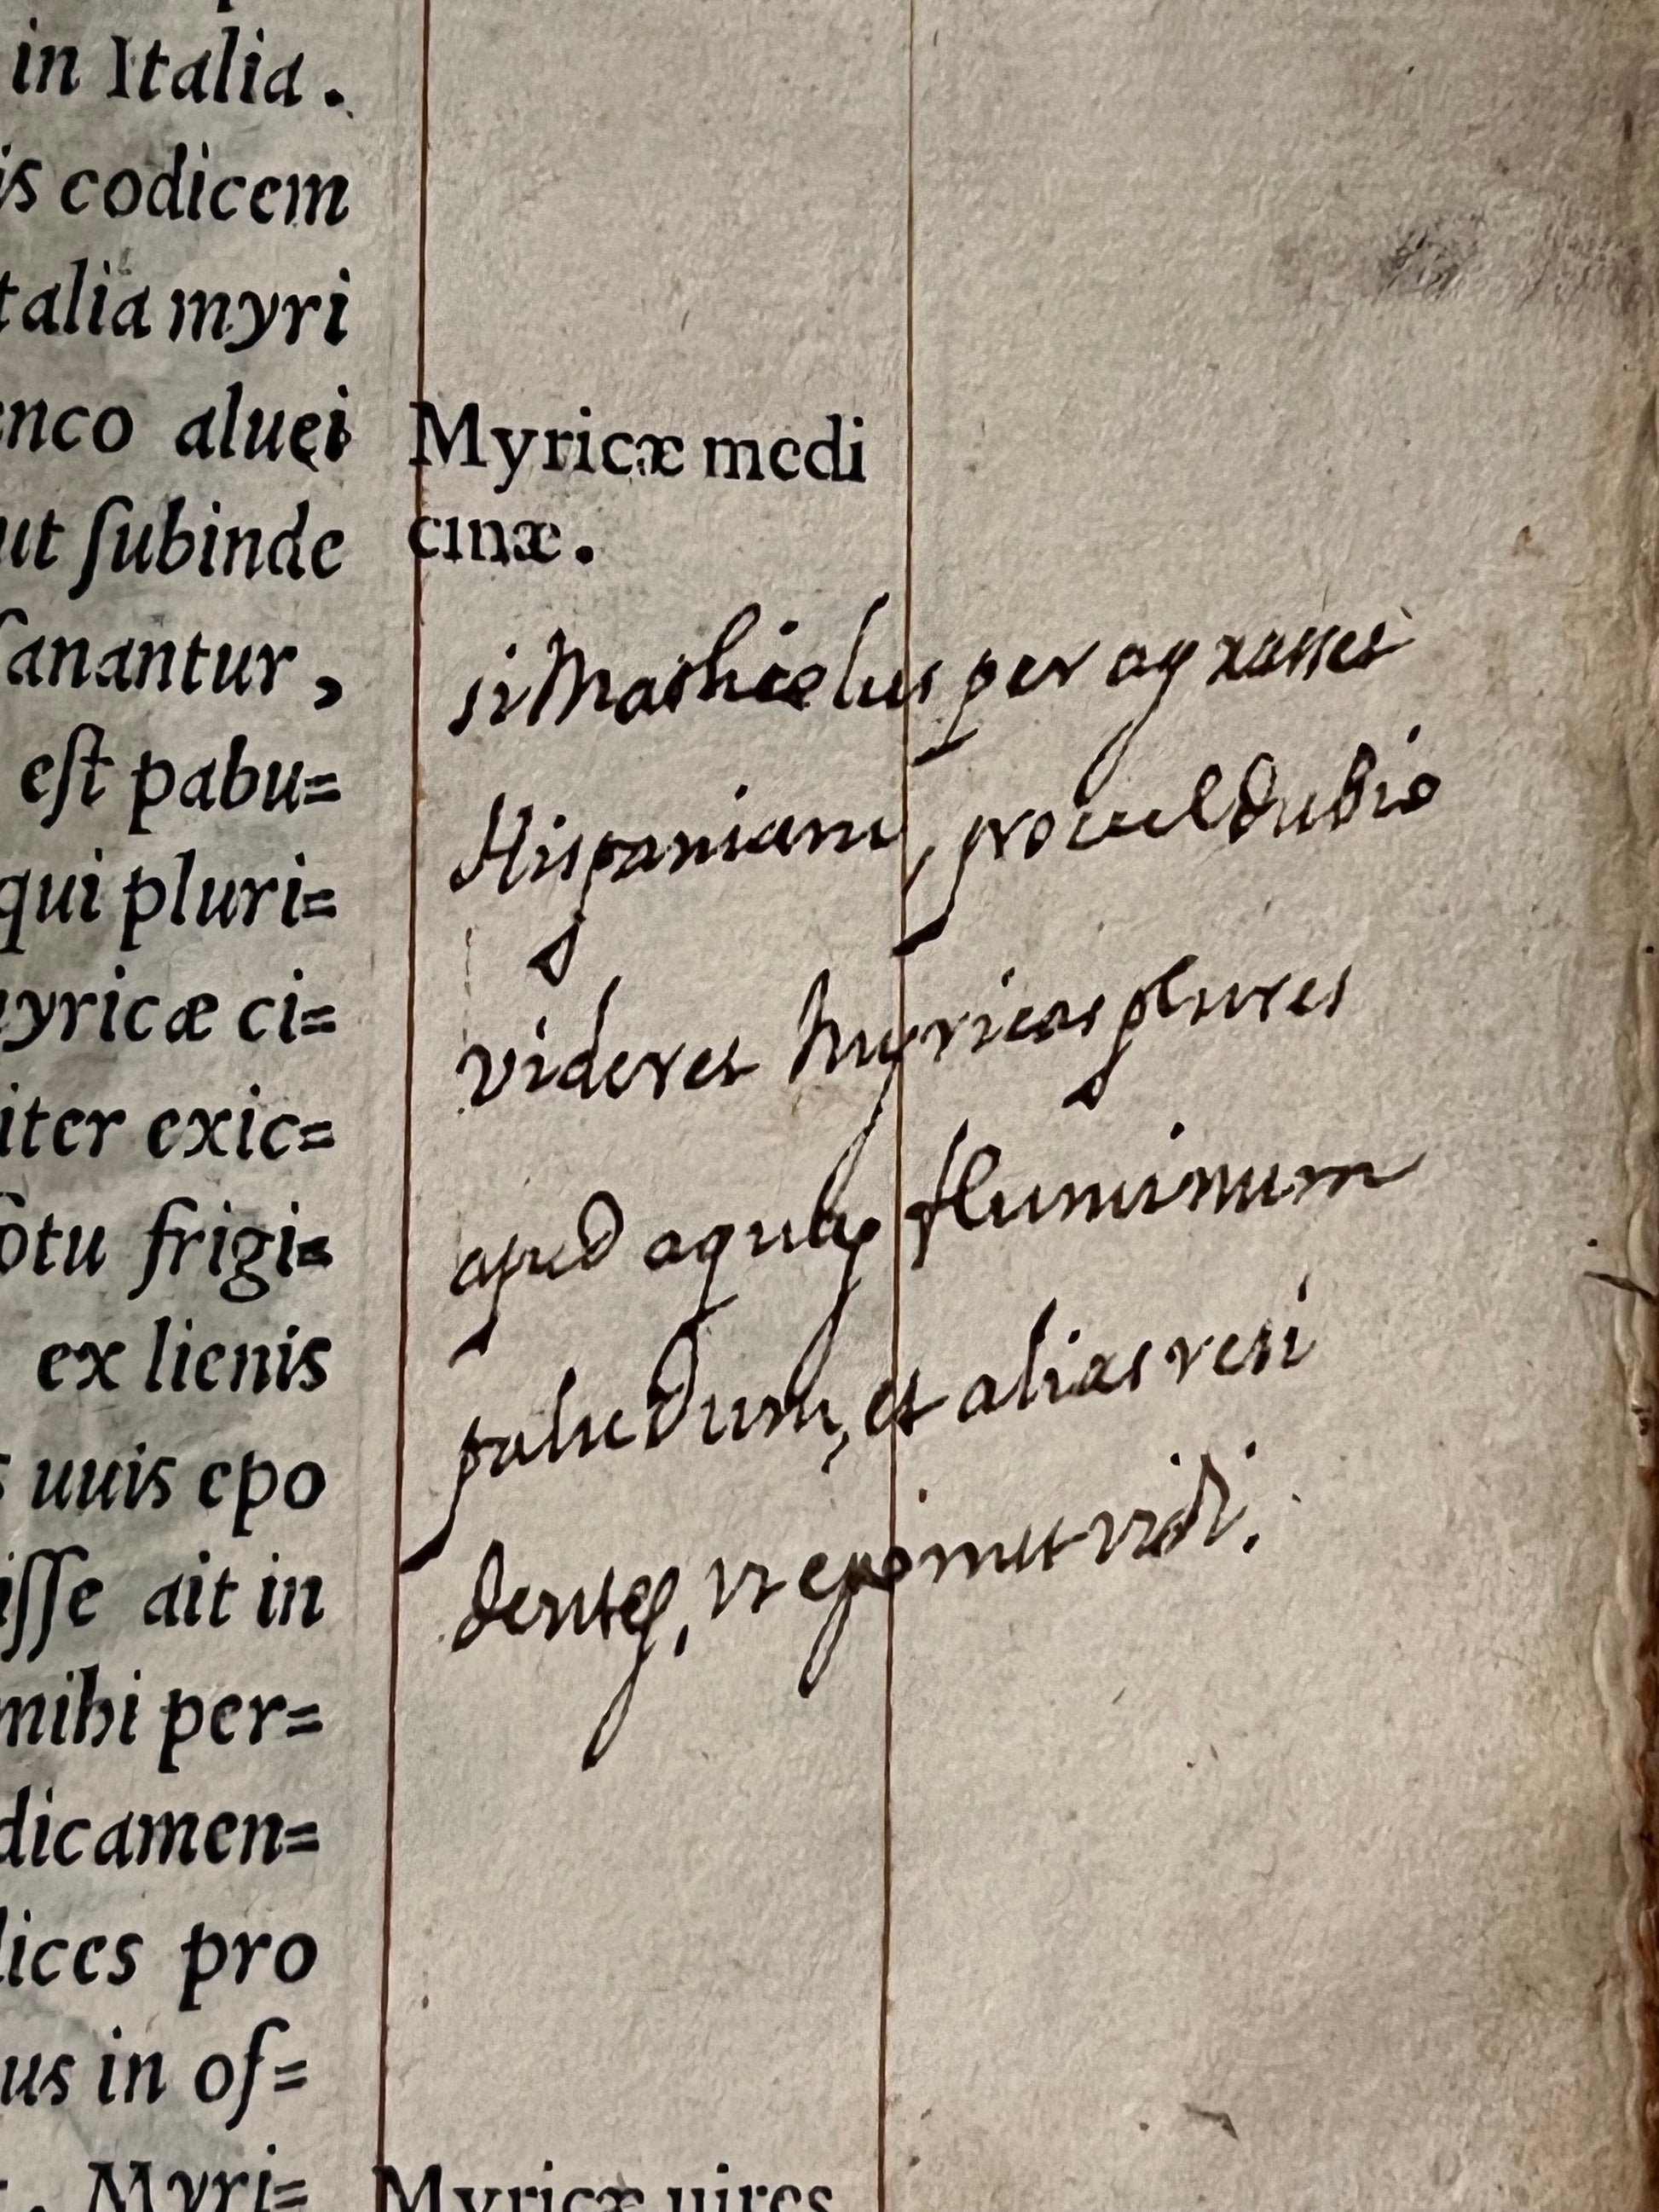 in Italia.
is codicem
talia myri
enco aluei
ut ſubinde
ſanantur,
est pabu=
qui pluri=
yricæ ci=
iter exic=
otu frigi=
ex lienis
uuis epo
iſſe ait in
mihi per=
dicamen=
lices pro
us in of=
Myri=
Myricæ medi
cinæ.
si Mathiolus peragrasset
Hispaniam, procul dubio
videret Myricas plures
apud aquas fluminum
paludum, et alias resi
dentes, vt egomet vidi.
Myricæ uires